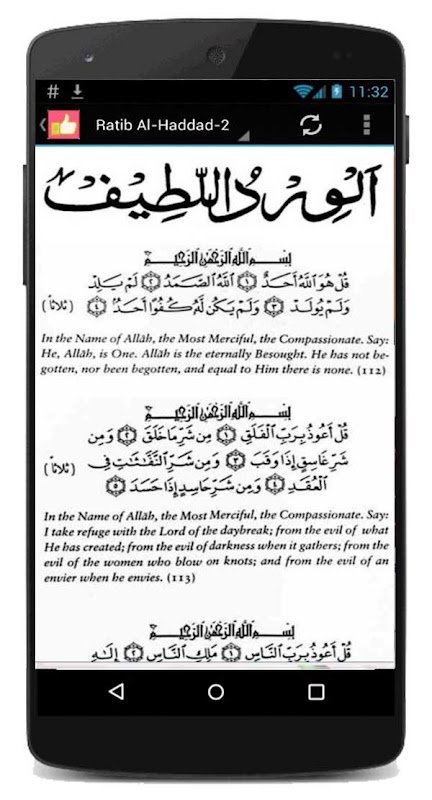 # 11:32
Ratib Al-Haddad-2
الورد اللطيف
بِسْمِ اللَّهِ الرَّحْمَٰنِ الرَّحِيمِ
قُلْ هُوَ اللَّهُ أَحَدٌ ۝١ اللَّهُ الصَّمَدُ ۝٢ لَمْ يَلِدْ
وَلَمْ يُولَدْ ۝٣ وَلَمْ يَكُن لَّهُ كُفُوًا أَحَدٌ ۝٤ (ثلاثاً)
In the Name of Allāh, the Most Merciful, the Compassionate. Say:
He, Allāh, is One. Allāh is the eternally Besought. He has not be-
gotten, nor been begotten, and equal to Him there is none. (112)
بِسْمِ اللَّهِ الرَّحْمَٰنِ الرَّحِيمِ
قُلْ أَعُوذُ بِرَبِّ الْفَلَقِ ۝١ مِن شَرِّ مَا خَلَقَ ۝٢ وَمِن
شَرِّ غَاسِقٍ إِذَا وَقَبَ ۝٣ وَمِن شَرِّ النَّفَّاثَاتِ فِي (ثلاثاً)
الْعُقَدِ ۝٤ وَمِن شَرِّ حَاسِدٍ إِذَا حَسَدَ ۝٥
In the Name of Allāh, the Most Merciful, the Compassionate. Say:
I take refuge with the Lord of the daybreak; from the evil of what
He has created; from the evil of darkness when it gathers; from the
evil of the women who blow on knots; and from the evil of an
envier when he envies. (113)
بِسْمِ اللَّهِ الرَّحْمَٰنِ الرَّحِيمِ
قُلْ أَعُوذُ بِرَبِّ النَّاسِ ۝١ مَلِكِ النَّاسِ ۝٢ إِلَٰهِ